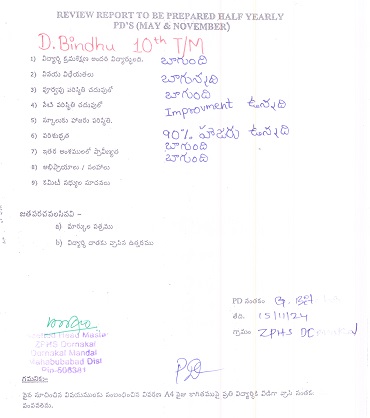 REVIEW REPORT TO BE PREPARED HALF YEARLY
PD'S (MAY & NOVEMBER)
D. Bindhu 10th T/M
1) విద్యార్థి క్రమశిక్షణ అందరి విద్యార్థులందు. బాగుంది
2) వినయ విధేయతలు బాగున్నది
3) పూర్వపు పరిస్థితి చదువులో బాగుంది
4) నేటి పరిస్థితి చదువులో Improvment ఉన్నది
5) స్కూలుకు హాజరు పరిస్థితి. 90% హాజరు ఉన్నది
6) పరిశుభ్రత బాగుంది
7) ఇతర అంశములలో ప్రావీణ్యత బాగుంది
8) అభిప్రాయాలు / సలహాలు
9) కమిటీ సభ్యుల సూచనలు
జతపరచవలసినవి :-
a) మార్కుల పత్రము
b) విద్యార్థి దాతకు వ్రాసిన ఉత్తరము
PD సంతకం
తేది. 15/11/24
గ్రామం: ZPHS
Head Master
ZPHS Dornakal
Dornakal Mandal
Mahabubabad Dist
Pin-506381
గమనిక:-
పైన సూచించిన విషయములకు సంబంధించిన వివరణ A4 సైజు కాగితముపై ప్రతి విద్యార్థికి విడిగా వ్రాసి
పంపవలెను.